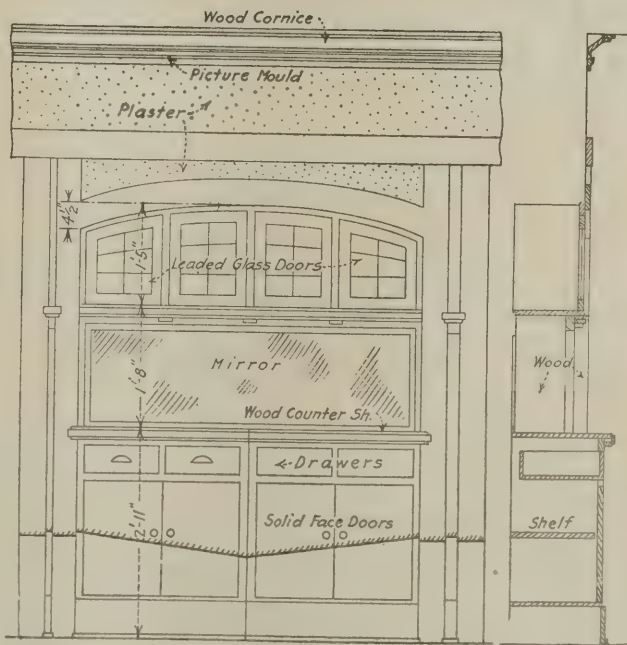 Wood Cornice
Picture Mould
Plaster
4½"
1'-5"
Leaded Glass Doors
Mirror
1'-8"
Wood
Wood Counter Sh.
Drawers
2'-11"
Solid Face Doors
Shelf